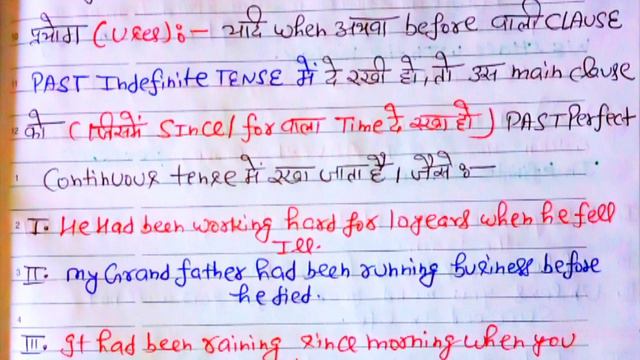 प्रयोग (Uses):- यदि when अथवा before वाली CLAUSE
PAST Indefinite TENSE में दे रखी हो, तो उस main clause
को (जिसमें Since/for वाला Time दे रखा हो) PAST Perfect
Continuous tense में रखा जाता है। जैसे:-
I. He Had been working hard for 10 years when he fell
Ill.
II. my Grand father had been running business before
he died.
III. It had been raining since morning when you